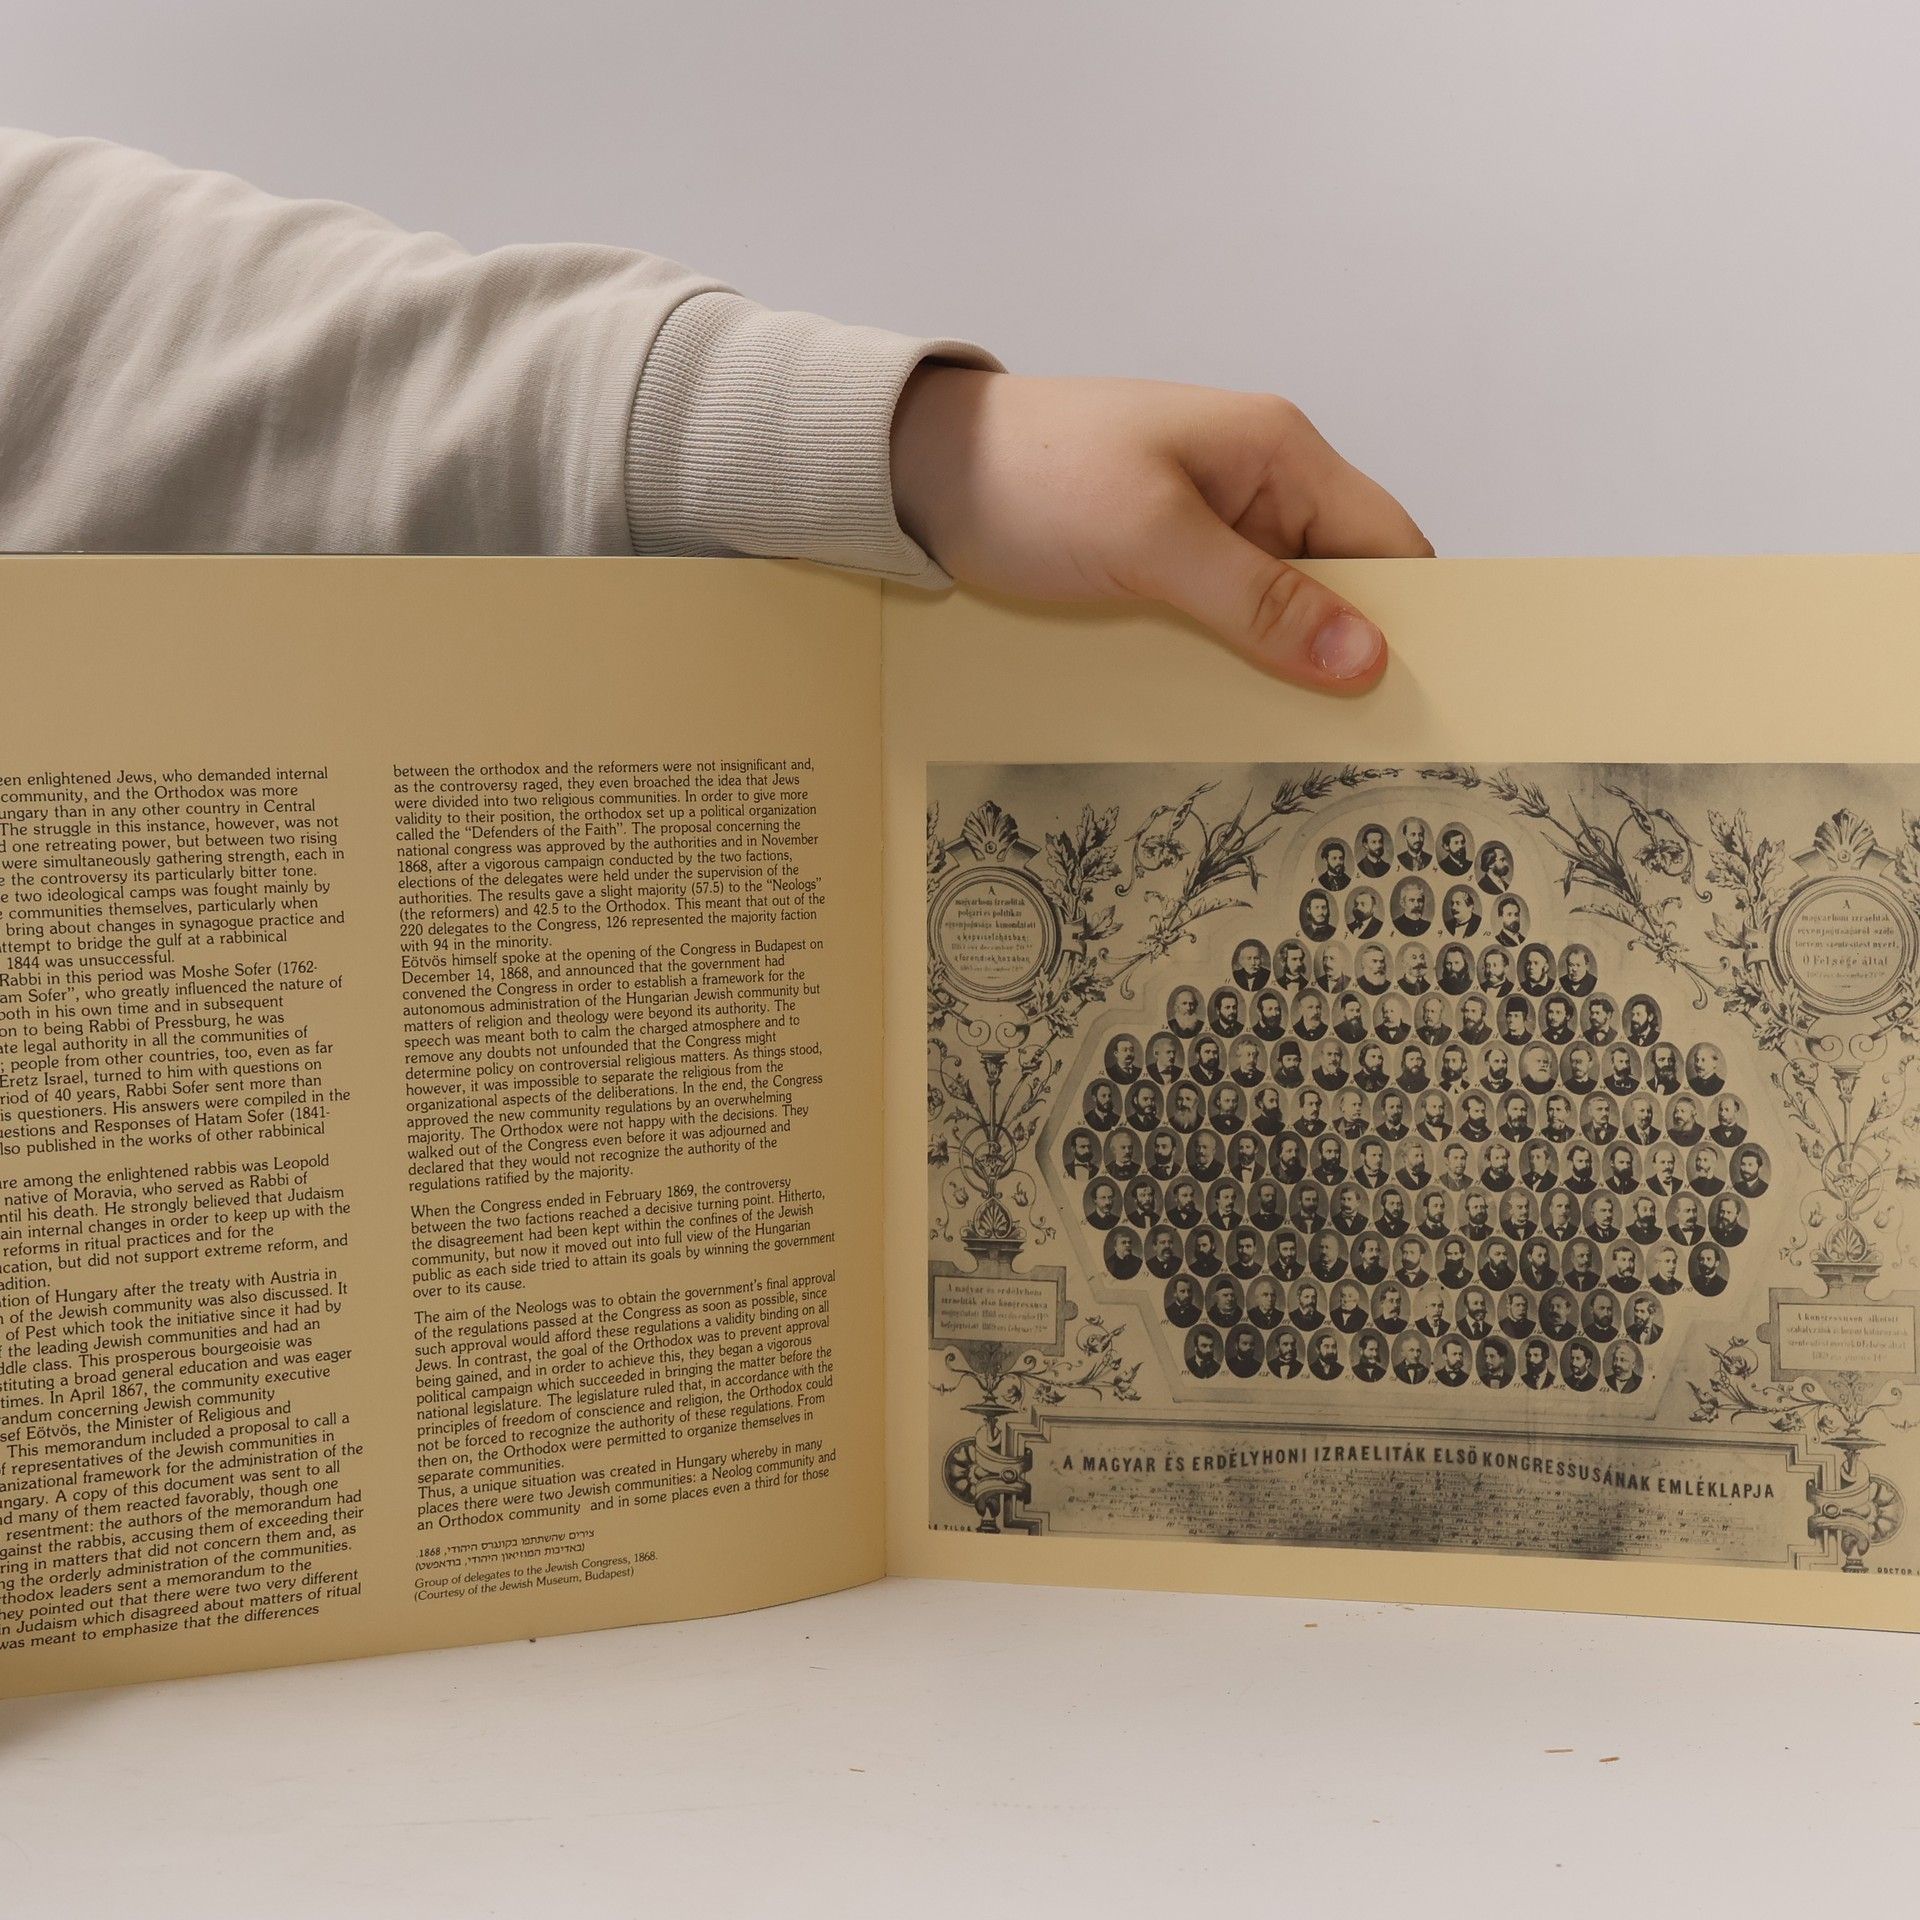 een enlightened Jews, who demanded internal
community, and the Orthodox was more
ungary than in any other country in Central
The struggle in this instance, however, was not
d one retreating power, but between two rising
were simultaneously gathering strength, each in
e the controversy its particularly bitter tone.
e two ideological camps was fought mainly by
e communities themselves, particularly when
bring about changes in synagogue practice and
attempt to bridge the gulf at a rabbinical
1844 was unsuccessful.
Rabbi in this period was Moshe Sofer (1762-
am Sofer", who greatly influenced the nature of
both in his own time and in subsequent
on to being Rabbi of Pressburg, he was
ate legal authority in all the communities of
; people from other countries, too, even as far
Eretz Israel, turned to him with questions on
riod of 40 years, Rabbi Sofer sent more than
is questioners. His answers were compiled in the
uestions and Responses of Hatam Sofer (1841-
lso published in the works of other rabbinical
ure among the enlightened rabbis was Leopold
native of Moravia, who served as Rabbi of
ntil his death. He strongly believed that Judaism
ain internal changes in order to keep up with the
reforms in ritual practices and for the
ucation, but did not support extreme reform, and
adition.
tion of Hungary after the treaty with Austria in
n of the Jewish community was also discussed. It
of Pest which took the initiative since it had by
f the leading Jewish communities and had an
ddle class. This prosperous bourgeoisie was
stituting a broad general education and was eager
times. In April 1867, the community executive
randum concerning Jewish community
sef Eötvös, the Minister of Religious and
This memorandum included a proposal to call a
f representatives of the Jewish communities in
anizational framework for the administration of the
ungary. A copy of this document was sent to all
nd many of them reacted favorably, though one
resentment: the authors of the memorandum had
gainst the rabbis, accusing them of exceeding their
ring in matters that did not concern them and, as
ng the orderly administration of the communities.
rthodox leaders sent a memorandum to the
hey pointed out that there were two very different
in Judaism which disagreed about matters of ritual
was meant to emphasize that the differences
between the orthodox and the reformers were not insignificant and,
as the controversy raged, they even broached the idea that Jews
were divided into two religious communities. In order to give more
validity to their position, the orthodox set up a political organization
called the "Defenders of the Faith". The proposal concerning the
national congress was approved by the authorities and in November
1868, after a vigorous campaign conducted by the two factions,
elections of the delegates were held under the supervision of the
authorities. The results gave a slight majority (57.5) to the "Neologs"
(the reformers) and 42.5 to the Orthodox. This meant that out of the
220 delegates to the Congress, 126 represented the majority faction
with 94 in the minority.
Eötvös himself spoke at the opening of the Congress in Budapest on
December 14, 1868, and announced that the government had
convened the Congress in order to establish a framework for the
autonomous administration of the Hungarian Jewish community but
matters of religion and theology were beyond its authority. The
speech was meant both to calm the charged atmosphere and to
remove any doubts not unfounded that the Congress might
determine policy on controversial religious matters. As things stood,
however, it was impossible to separate the religious from the
organizational aspects of the deliberations. In the end, the Congress
approved the new community regulations by an overwhelming
majority. The Orthodox were not happy with the decisions. They
walked out of the Congress even before it was adjourned and
declared that they would not recognize the authority of the
regulations ratified by the majority.
When the Congress ended in February 1869, the controversy
between the two factions reached a decisive turning point. Hitherto,
the disagreement had been kept within the confines of the Jewish
community, but now it moved out into full view of the Hungarian
public as each side tried to attain its goals by winning the government
over to its cause.
The aim of the Neologs was to obtain the government's final approval
of the regulations passed at the Congress as soon as possible, since
such approval would afford these regulations a validity binding on all
Jews. In contrast, the goal of the Orthodox was to prevent approval
being gained, and in order to achieve this, they began a vigorous
political campaign which succeeded in bringing the matter before the
national legislature. The legislature ruled that, in accordance with the
principles of freedom of conscience and religion, the Orthodox could
not be forced to recognize the authority of these regulations. From
then on, the Orthodox were permitted to organize themselves in
separate communities.
Thus, a unique situation was created in Hungary whereby in many
places there were two Jewish communities: a Neolog community and
an Orthodox community and in some places even a third for those
צירים שהשתתפו בקונגרס היהודי, 1868.
(באדיבות המוזיאון היהודי, בודאפשט)
Group of delegates to the Jewish Congress, 1868.
(Courtesy of the Jewish Museum, Budapest)
A
magyarhoni izraeliták
polgári és politikai
egyenjogúsága kimondatott
a képviselőházban:
a főrendiek házában
A
magyarhoni izraeliták
egyenjogúságáról szóló
törvény szentesítést nyert.
Ő Felsége által
A magyar és erdélyhoni
izraeliták első kongressusa
A kongressuson alkotott
A MAGYAR ÉS ERDÉLYHONI IZRAELITÁK ELSŐ KONGRESSUSÁNAK EMLÉKLAPJA
DOCTOR